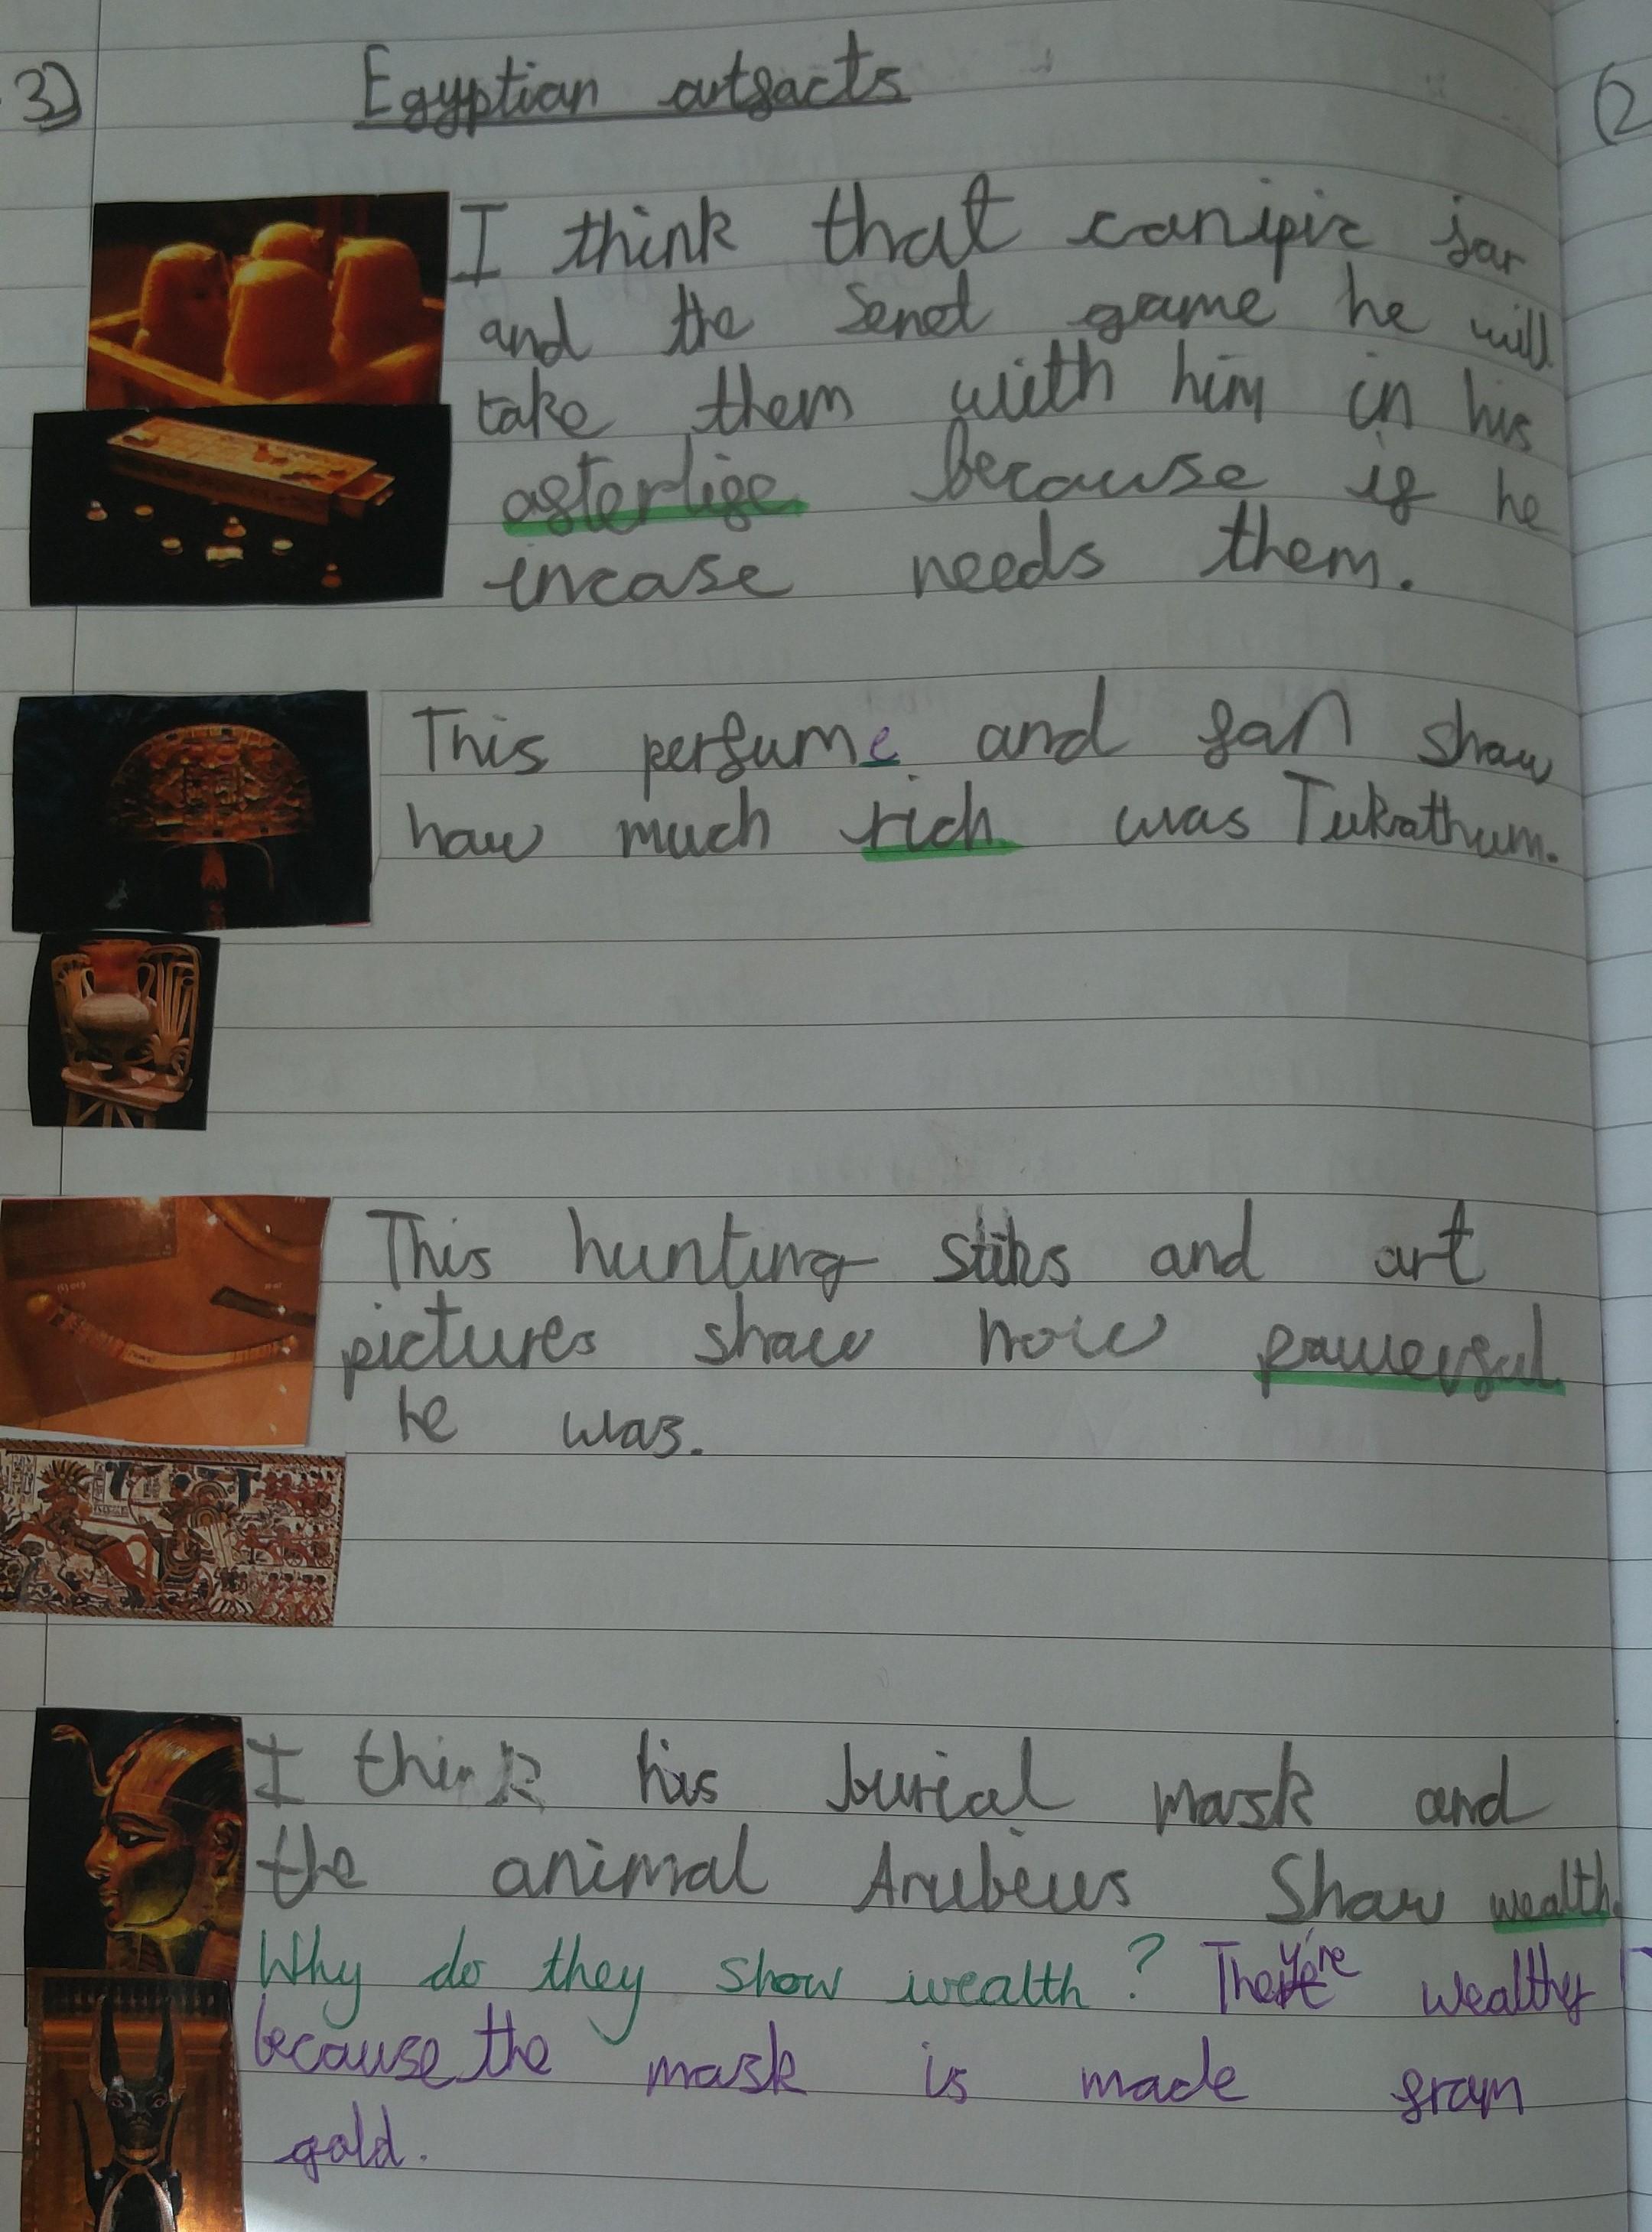 3)
Egyptian artfacts
(2
I think that canipic jar
and the Senet game he will
take them with him in his
afterlife because if he
incase needs them.
This perfume and fan show
how much rich was Tukrathum.
This hunting stiks and art
pictures show how powerful
he was.
I think his burial mask and
the animal Anubeus Show wealth.
Why do they show wealth? They're wealthy
because the mask is made from
gold.